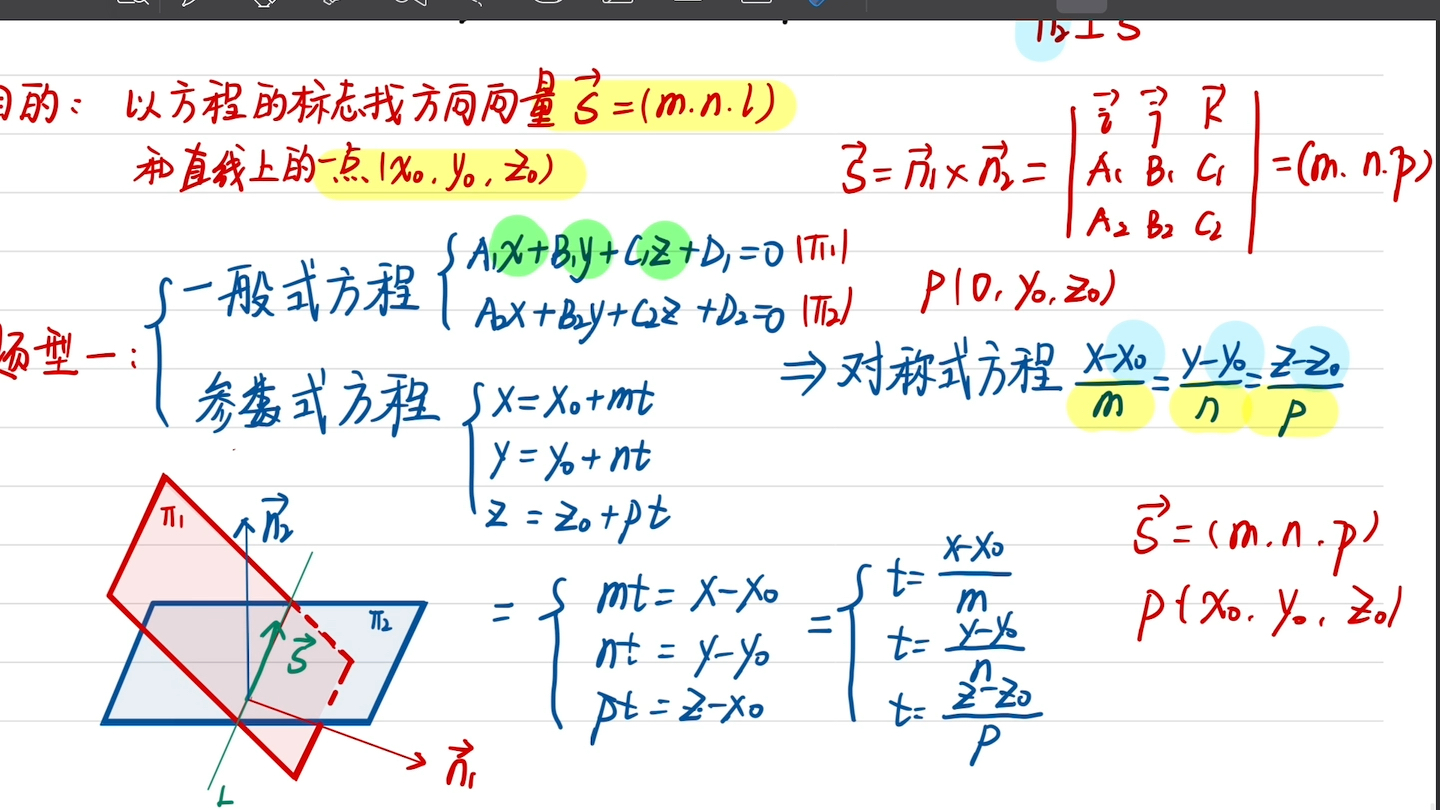 π₂⊥S
目的：以方程的标志找方向向量 S⃗=(m.n.l)
和直线上的一点(x₀,y₀,z₀)
S⃗=n⃗₁×n⃗₂=|i⃗ j⃗ k⃗
A₁ B₁ C₁
A₂ B₂ C₂|=(m.n.p)
题型一：
一般式方程 {A₁x+B₁y+C₁z+D₁=0 (π₁)
A₂x+B₂y+C₂z+D₂=0 (π₂)
P(0,y₀,z₀)
参数式方程 {x=x₀+mt
y=y₀+nt
z=z₀+pt
⇒对称式方程 (x-x₀)/m=(y-y₀)/n=(z-z₀)/p
={mt=x-x₀
nt=y-y₀
pt=z-x₀
={t=(x-x₀)/m
t=(y-y₀)/n
t=(z-z₀)/p
S⃗=(m.n.p)
P(x₀,y₀,z₀)
π₁
n⃗₂
π₂
S⃗
n⃗₁
L